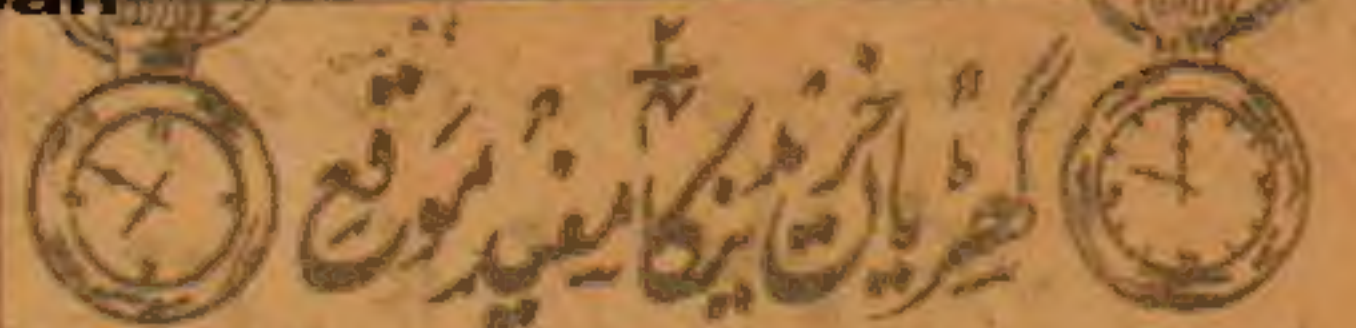 گھڑیاں خریدنے کا مفید موقع